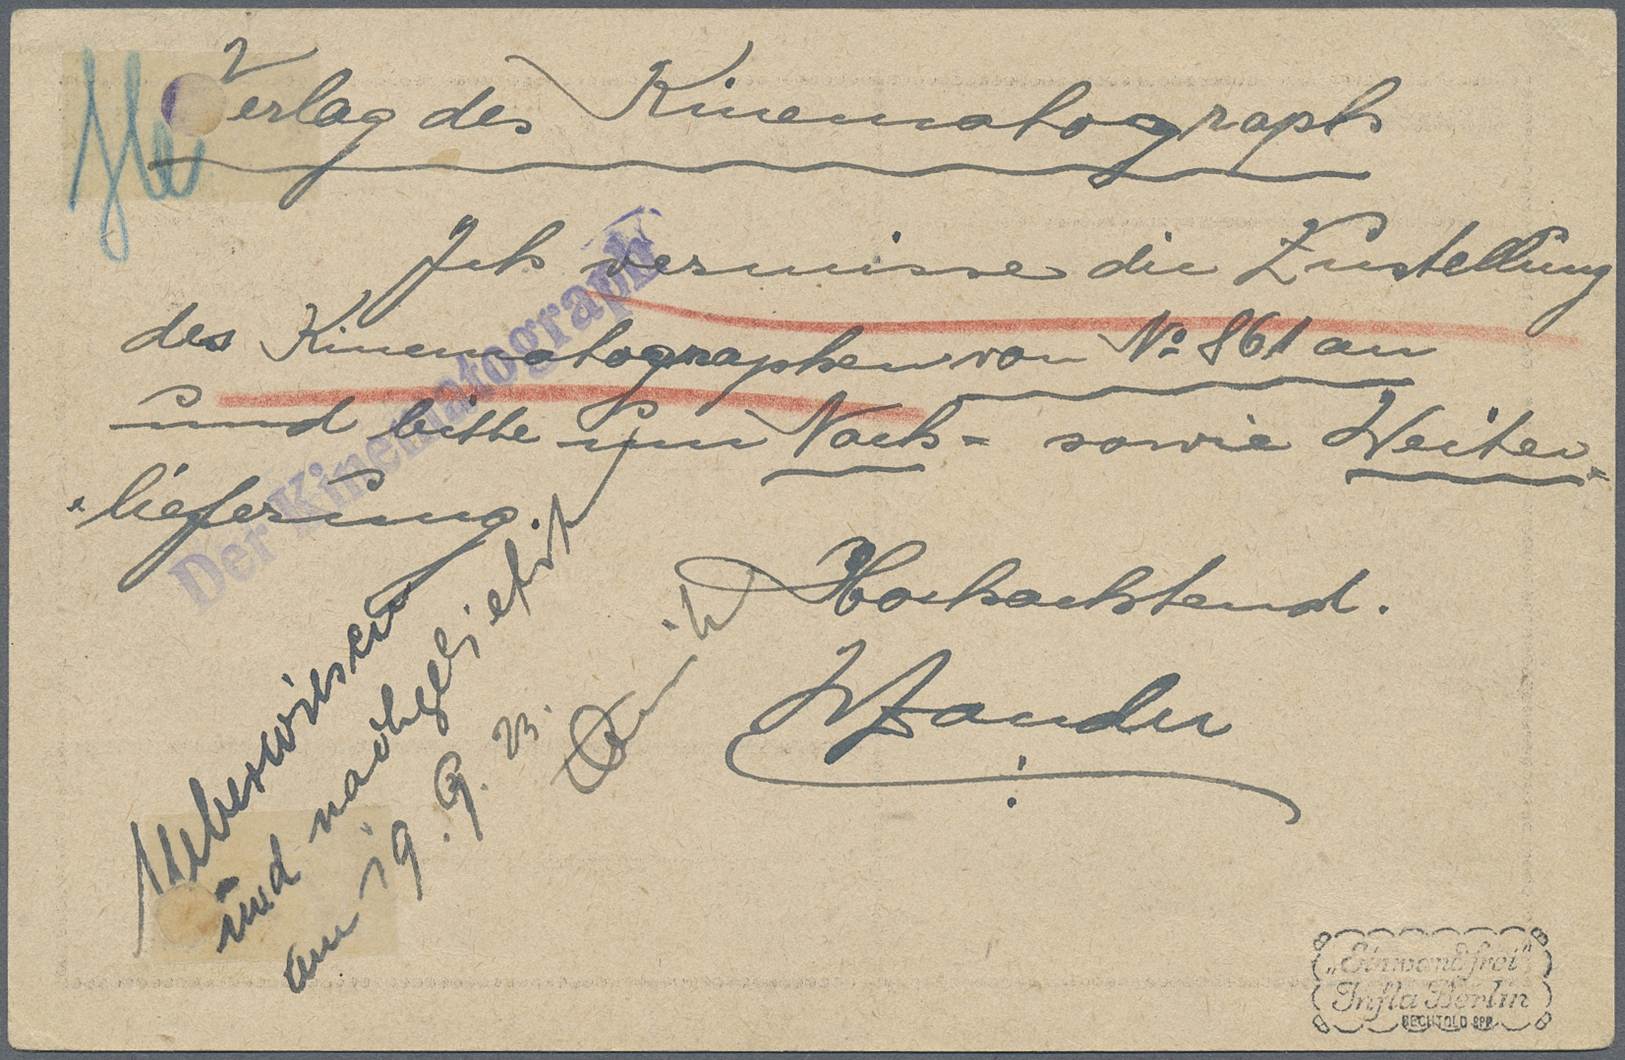 Verlag des Kinematograph
Ich vermisse die Zustellung
des Kinematographen von No 861 an
und bitte um Nach- sowie Weiter-
lieferung.
Hochachtend.
Der Kinematograph
Ueberwiesen
und nachgeliefert
am 19. 9. 23.
"Einwandfrei"
Infla Berlin
BECHTOLD BPP